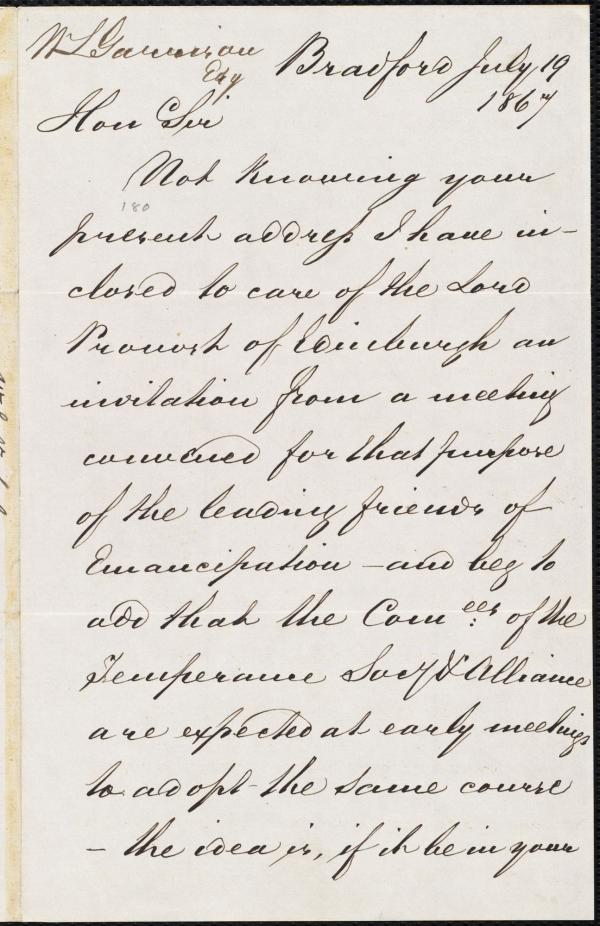 W L Garrison
Esq
Bradford July 19
1867
Hon Sir
Not knowing your
180
present address I have in-
closed to care of the Lord
Provost of Edinburgh an
invitation from a meeting
convened for that purpose
of the leading friends of
Emancipation - and beg to
add that the Com.ees of the
Temperance Socy & Alliance
are expected at early meetings
to adopt the same course
- the idea is, if it be in your